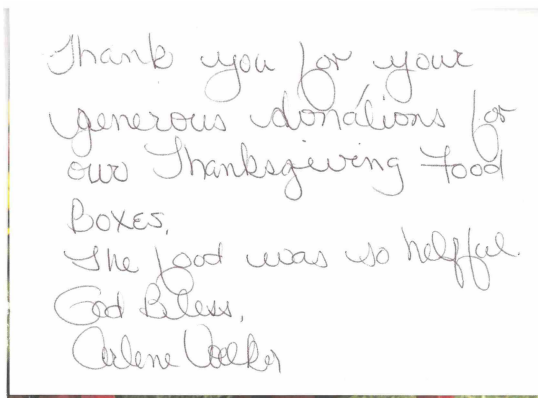 Thank you for your
generous donations for
our Thanksgiving Food
Boxes.
The food was so helpful.
God Bless,
Arlene